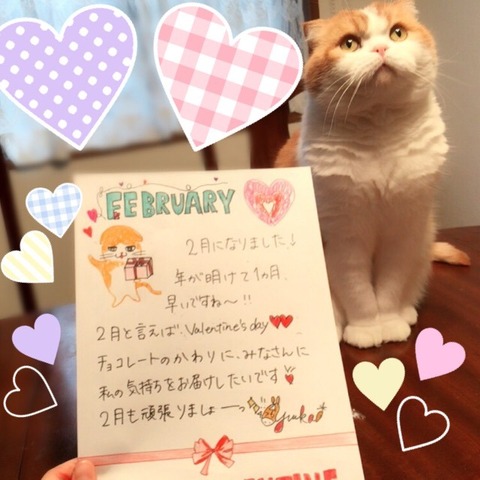 FEBRUARY
2月になりました!
年が明けて1ヵ月、
早いですね〜!!
2月と言えば、Valentine's day
チョコレートのかわりに、みなさんに
私の気持ちをお届けしたいです
2月も頑張りましょーっ